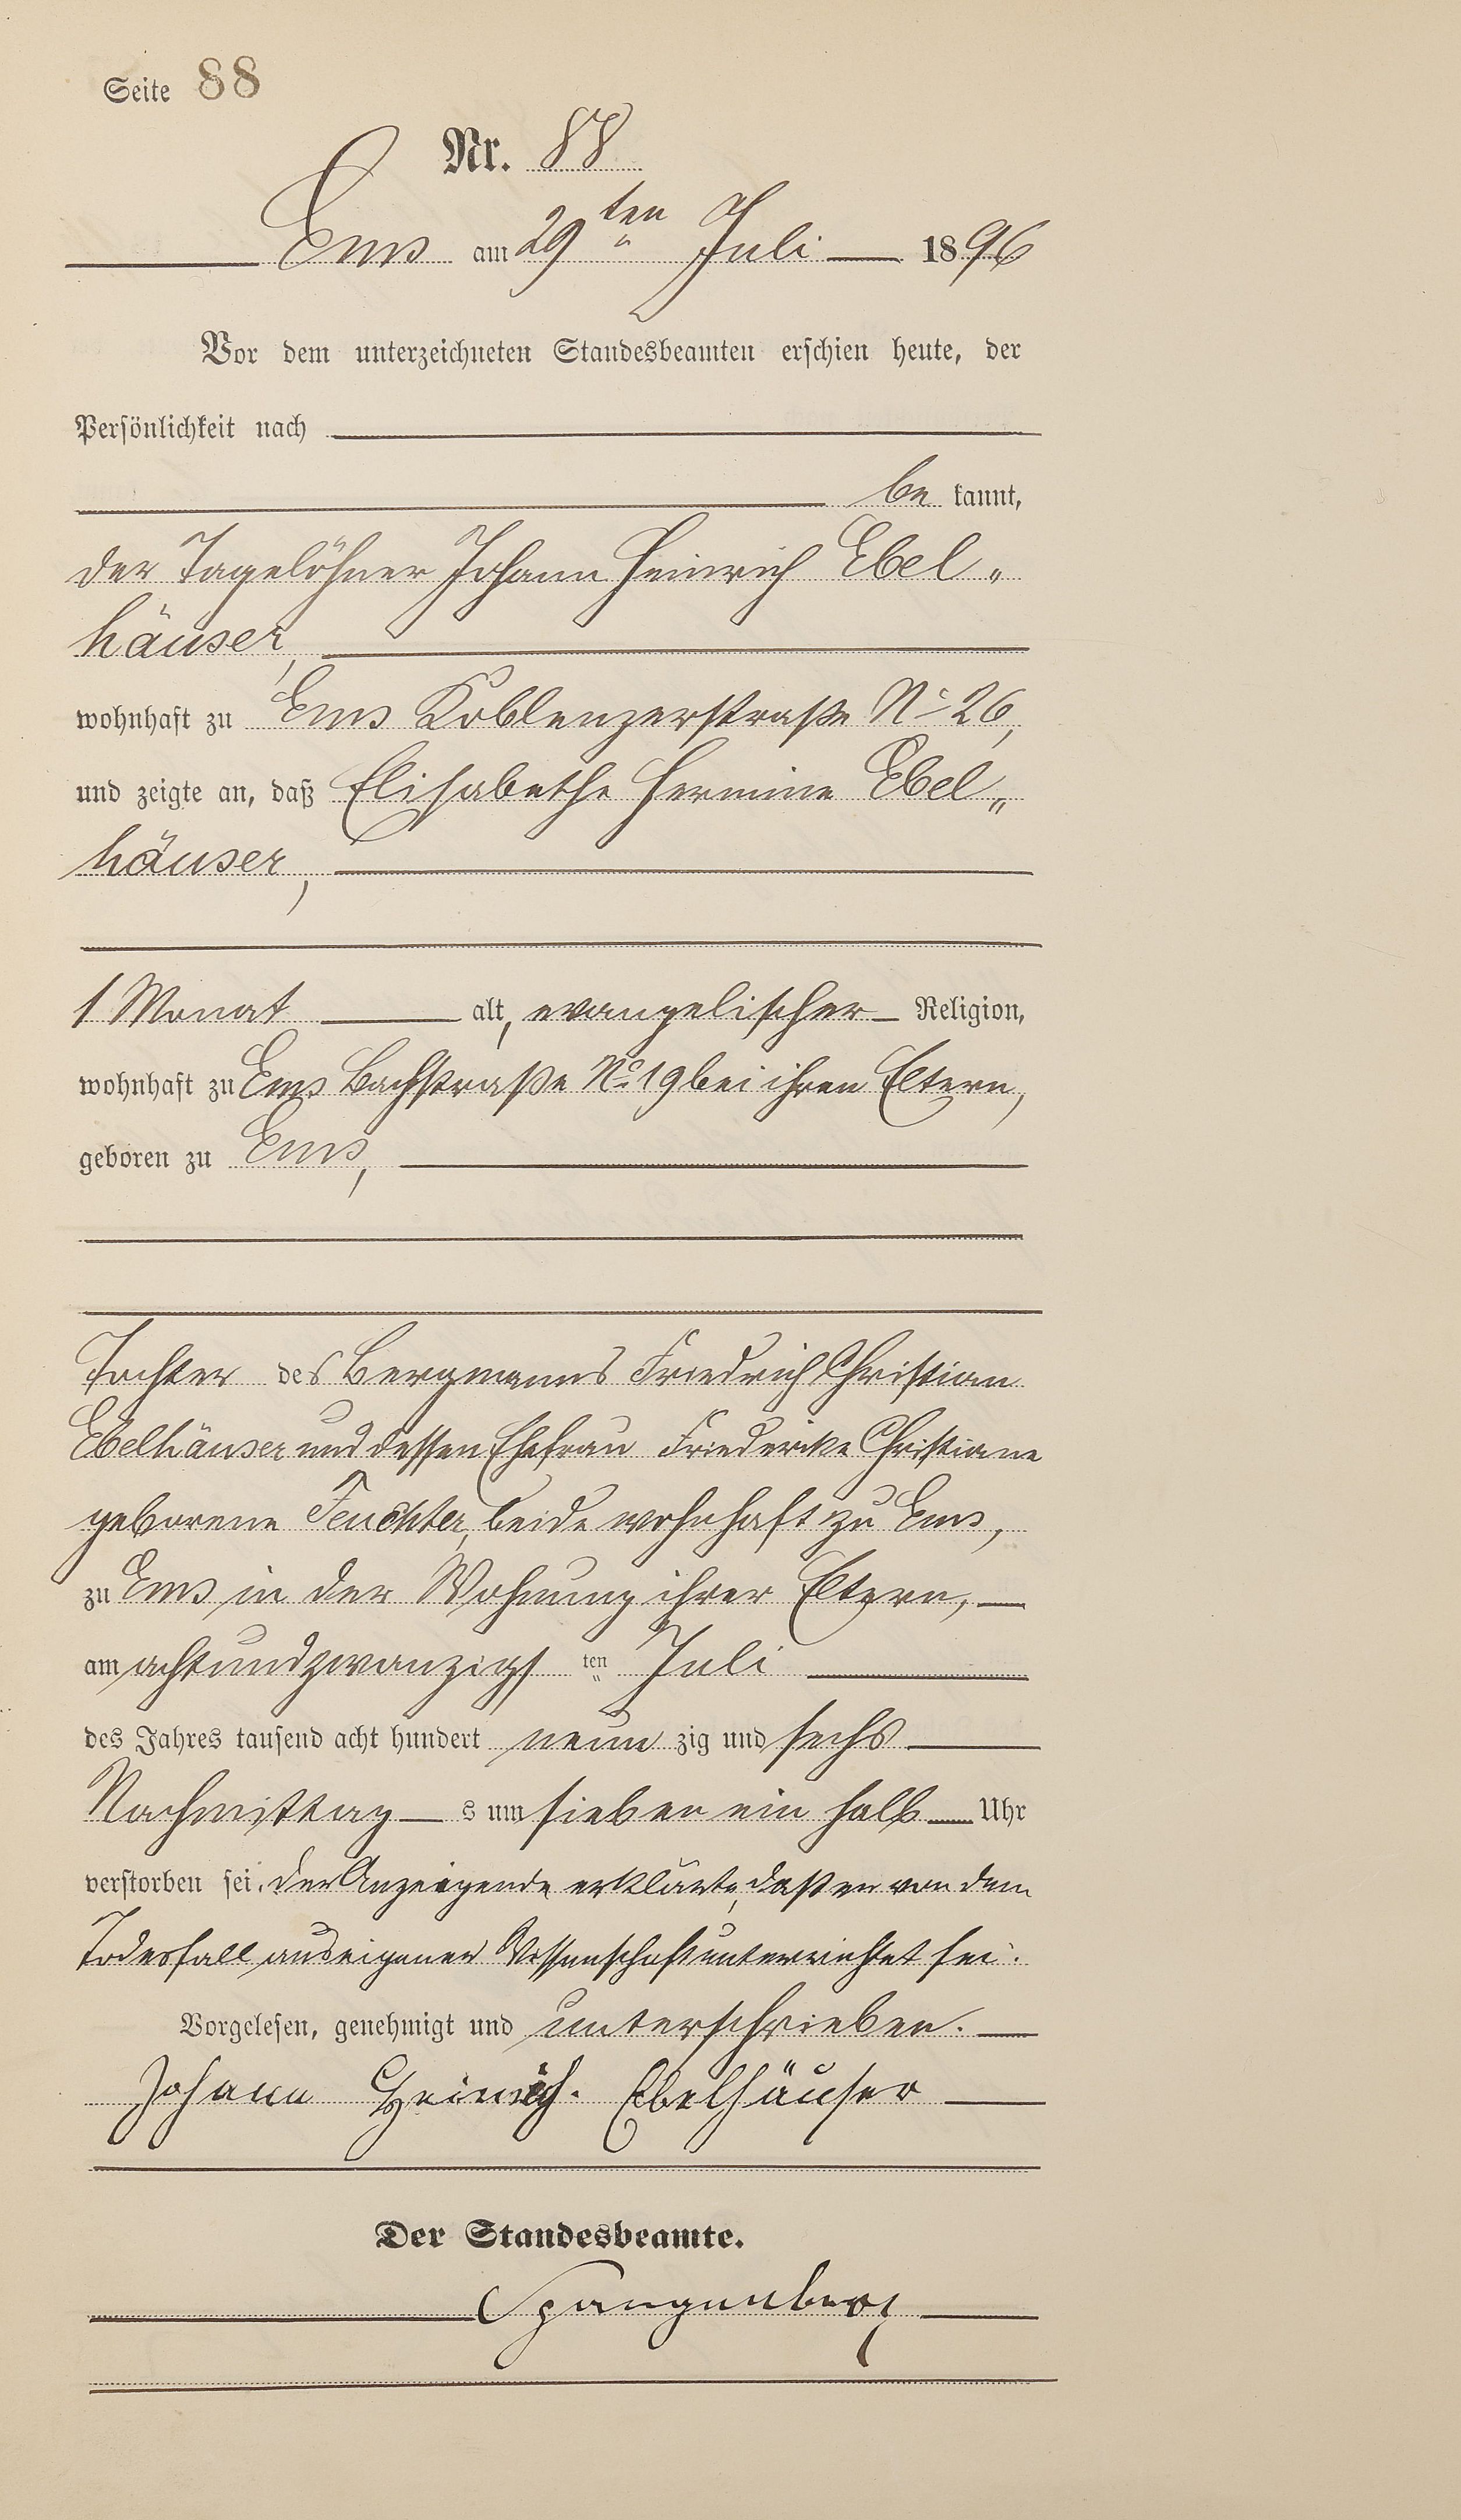 Seite 88
Nr. 88
Ems am 29ten Juli 1896
Vor dem unterzeichneten Standesbeamten erschien heute, der
Persönlichkeit nach
be kannt,
der Tagelöhner Johann Heinrich Ebel„
häuser,
wohnhaft zu Ems Koblenzerstraße No 26,
und zeigte an, daß Elisabethe Hermine Ebel„
häuser,
1 Monat alt, evangelischer Religion,
wohnhaft zu Ems Bachstraße No 19 bei ihren Eltern,
geboren zu Ems,
Tochter des Bergmanns Friedrich Christian
Ebelhäuser und dessen Ehefrau Friederike Christiane
geborene Feuchter, beide wohnhaft zu Ems,
zu Ems in der Wohnung ihrer Eltern,
am achtundzwanzigs ten Juli
des Jahres tausend acht hundert neun zig und sechs
Nachmittag s um sieben ein halb Uhr
verstorben sei. Der Anzeigende erklärte, daß er von dem
Todesfall aus eigener Wissenschaft unterrichtet sei.
Vorgelesen, genehmigt und unterschrieben.
Johann Heinrich. Ebelhäuser
Der Standesbeamte.
Spangenberg